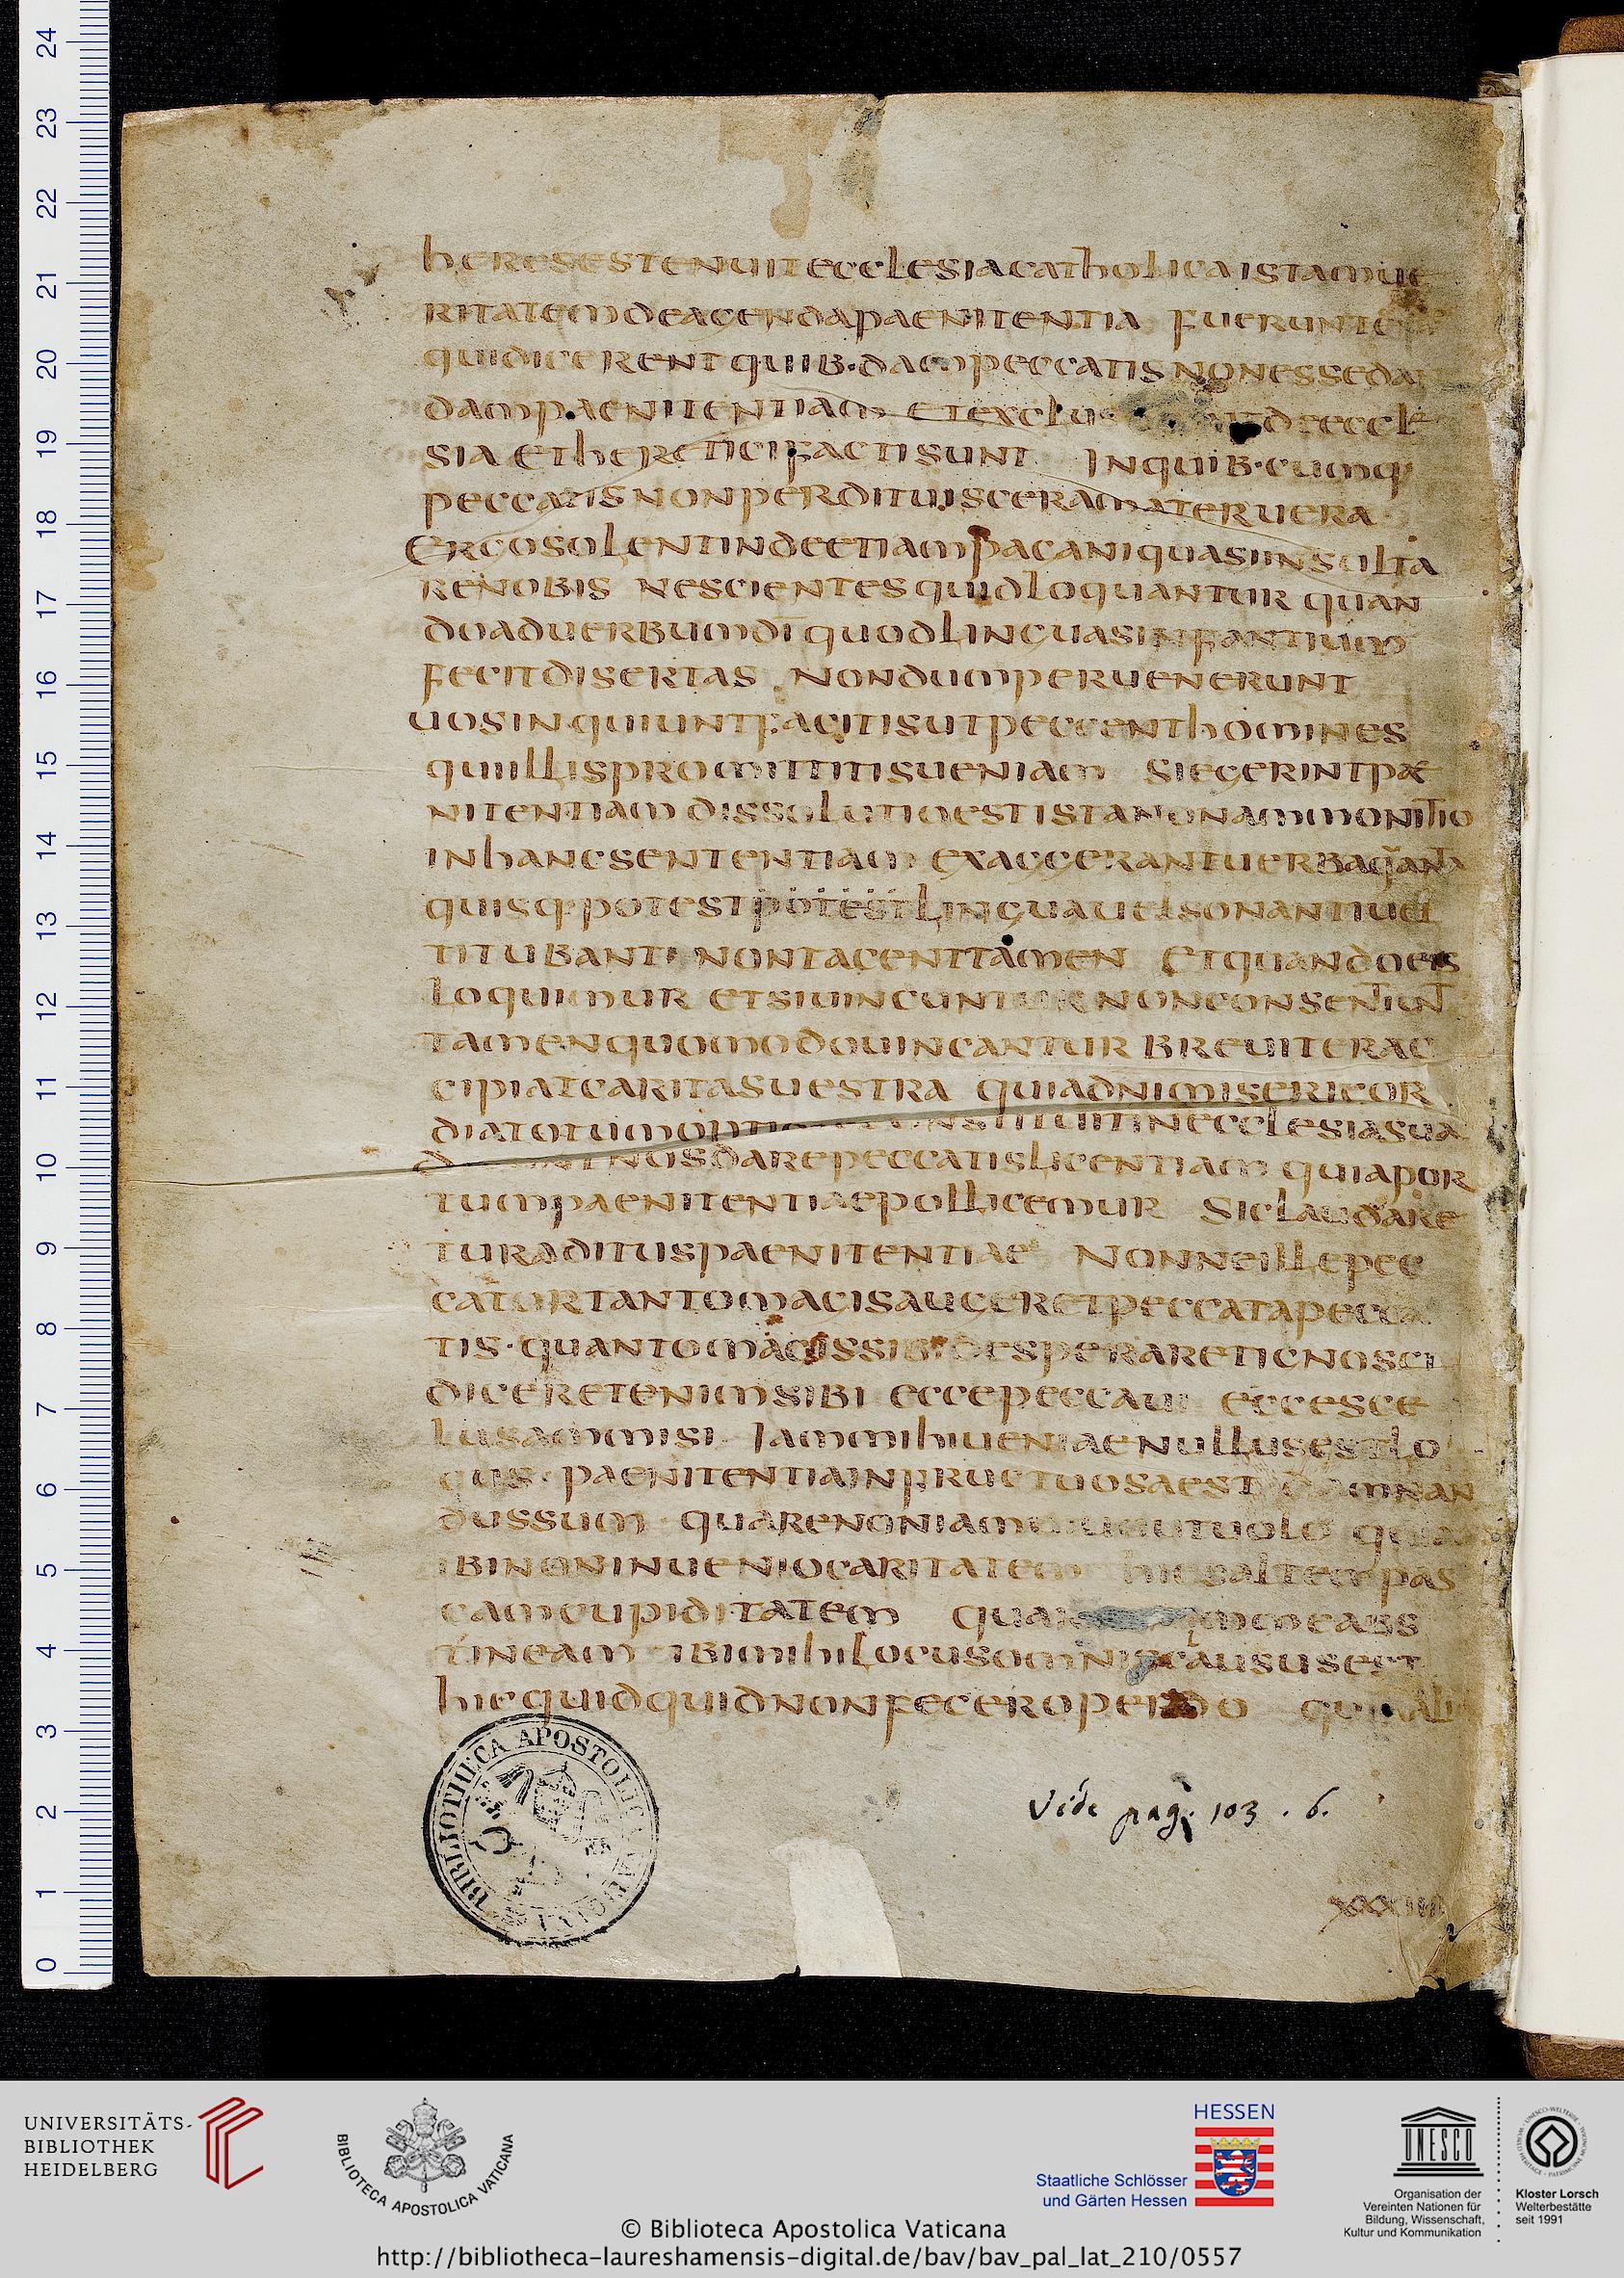 24
23
22
21
20
19
18
17
16
15
14
13
12
11
10
9
8
7
6
5
4
3
2
1
0
heresestenuitecclesiacatholicaistamue
ritatemdeagendapaenitentia fuerunt
quidicerentquib·dampeccatisnonesseda
dampaenitentiam etexclu deeccle
sia ethereticifactisunt Inquib·cumq·
peccatisnonperdituisceramateruera
Ergosolentindeetiampaganiquasiinsulta
renobis nescientesquidloquantur quan
doaduerbumdi quodlinguasinfantium
fecitdisertas nondumperuenerunt
uosinquiuntfacitisutpeccenthomines
quiillispromittitisueniam siegerintpae
nitentiam dissolutioestistanonammonitio
inhancsententiam exaggerantuerba
quisq·potestpotestlinguauelsonantiuel
titubanti nontacenttamen Etquandoeis
loquimur etsiuincuntur nonconsentiunt
tamenquomodouincantur breuiterac
cipiatcaritasuestra quiadnimisericor
diatotum inecclesiasua
nosdarepeccatislicentiam quiapor
tumpaenitentiaepollicemur Siclaudare
turadituspaenitentiae Nonneillepec
catortantomagisaugeretpeccatapecca
tis·quantomagissibidesperaretignosci
diceretenimsibi eccepeccaui eccesce
lusammisi Iammihiueniaenullusestlo
cus·paenitentiainfructuosaest damnan
dussum quarenoniam utuolo
ibinoninueniocaritatem hicsaltempas
camcupiditatem meabs
tineam ibimihilocusomnisclaususest
hicquidquidnonfeceroperdo
Vide pag. 103 . 6.
BIBLIOTHECA APOSTOLICA VATICANA
UNIVERSITÄTS-
BIBLIOTHEK
HEIDELBERG
BIBLIOTECA APOSTOLICA VATICANA
HESSEN
Staatliche Schlösser
und Gärten Hessen
UNESCO
Organisation der
Vereinten Nationen für
Bildung, Wissenschaft,
Kultur und Kommunikation
Kloster Lorsch
Welterbestätte
seit 1991
© Biblioteca Apostolica Vaticana
http://bibliotheca-laureshamensis-digital.de/bav/bav_pal_lat_210/0557